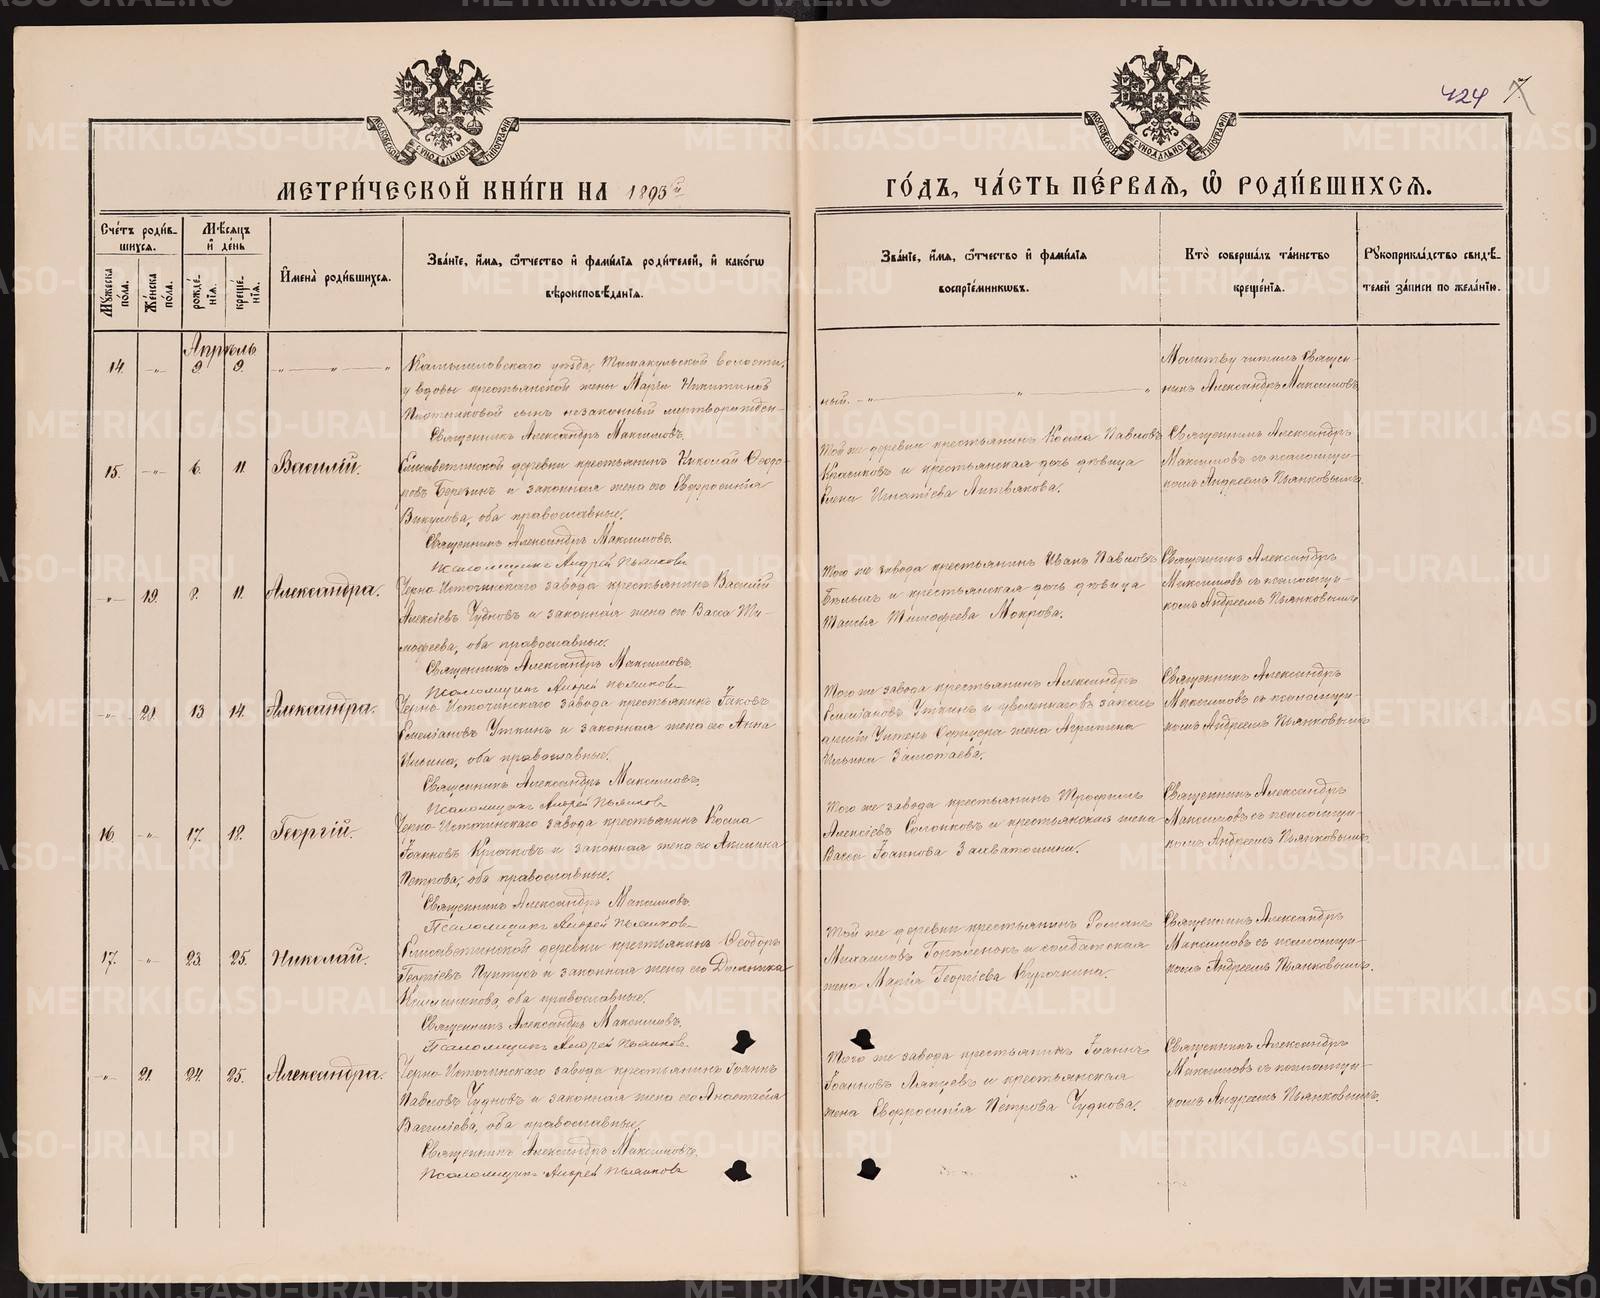 424
МЕТРИ́ЧЕСКОЙ КНИ́ГИ НА 1893й
ГО́ДЪ, ЧА́СТЬ ПЕ́РВАѦ, Ѡ РОДИ́ВШИХСѦ.
Сче́тъ роди́в-
шихсѧ.
Мѣ́сѧцъ
и҆ де́нь
Мꙋ́жеска
по́ла.
Же́нска
по́ла.
рожде́-
нїѧ.
креще́-
нїѧ.
И҆мена̀ роди́вшихсѧ.
Зва́нїе, и҆́мѧ, ѻ҆́тчество и҆ фами́лїѧ роди́телей, и҆ како́гѡ
вѣроисповѣ́данїѧ.
Зва́нїе, и҆́мѧ, ѻ҆́тчество и҆ фами́лїѧ
воспрїе́мникѡвъ.
Кто̀ соверша́лъ та́инство
креще́нїѧ.
Рꙋкоприкла́дство свидѣ́-
телей за́писи по жела́нїю.
Апрѣль
14. 9. 9.
Камышловскаго уѣзда, волости,
у вдовы крестьянской жены Маріи Никитиной
сынъ незаконный мертворожден-
ный.
Священникъ Александръ Максимовъ.
Молитву читалъ Священ-
никъ Александръ Максимовъ.
15. 6. 11. Василій.
Елисаветинской деревни крестьянинъ Николай Ѳеодо-
ровъ Березинъ и законная жена его Евфросинія
Викулова, оба православные.
Священникъ Александръ Максимовъ.
Псаломщикъ Андрей Пьянковъ
Той же деревни крестьянинъ Косма Павловъ
Красиковъ и крестьянская дочь дѣвица
Елена Игнатіева Литвякова.
Священникъ Александръ
Максимовъ съ псаломщи-
комъ Андреемъ Пьянковымъ.
19. 8. 11. Александра.
Черно-Источинскаго завода крестьянинъ Василій
Алексіевъ Чудновъ и законная жена его Васса Ти-
мофеева, оба православные.
Священникъ Александръ Максимовъ.
Псаломщикъ Андрей Пьянковъ
Того же завода крестьянинъ Иванъ Павловъ
и крестьянская дочь дѣвица
Таисья Тимофеева Мокрова.
Священникъ Александръ
Максимовъ съ псаломщи-
комъ Андреемъ Пьянковымъ.
20. 13 14. Александра.
Черно-Источинскаго завода крестьянинъ Іаковъ
Емельяновъ Уткинъ и законная жена его Анна
Ильина, оба православные.
Священникъ Александръ Максимовъ.
Псаломщикъ Андрей Пьянковъ
Того же завода крестьянинъ Александръ
Емельяновъ Уткинъ и уволеннаго въ запас
жена Агрипина
Ильина
Священникъ Александръ
Максимовъ съ псаломщи-
комъ Андреемъ Пьянковымъ.
16. 17. 18. Георгій.
Черно-Источинскаго завода крестьянинъ Косма
Іоанновъ Крючковъ и законная жена его Акилина
Петрова, оба православные.
Священникъ Александръ Максимовъ.
Псаломщикъ Андрей Пьянковъ
Того же завода крестьянинъ Трофимъ
Алексіевъ Солонковъ и крестьянская жена
Васса Іоаннова
Священникъ Александръ
Максимовъ съ псаломщи-
комъ Андреемъ Пьянковымъ.
17. 23. 25. Николай.
Елисаветинской деревни крестьянинъ Ѳеодоръ
Георгіевъ и законная жена его Домника
оба православные.
Священникъ Александръ Максимовъ.
Псаломщикъ Андрей Пьянковъ
Той же деревни крестьянинъ Романъ
Михаиловъ и солдатская
жена Марія Георгіева Курочкина.
Священникъ Александръ
Максимовъ съ псаломщи-
комъ Андреемъ Пьянковымъ.
21. 24. 25. Александра.
Черно-Источинскаго завода крестьянинъ Іоаннъ
Павловъ Чудновъ и законная жена его Анастасія
Василіева, оба православные.
Священникъ Александръ Максимовъ.
Псаломщикъ Андрей Пьянковъ
Того же завода крестьянинъ Іоаннъ
Іоанновъ Ляпцевъ и крестьянская
жена Евфросинія Петрова Чуднова.
Священникъ Александръ
Максимовъ съ псаломщи-
комъ Андреемъ Пьянковымъ.
METRIKI.GASO-URAL.RU